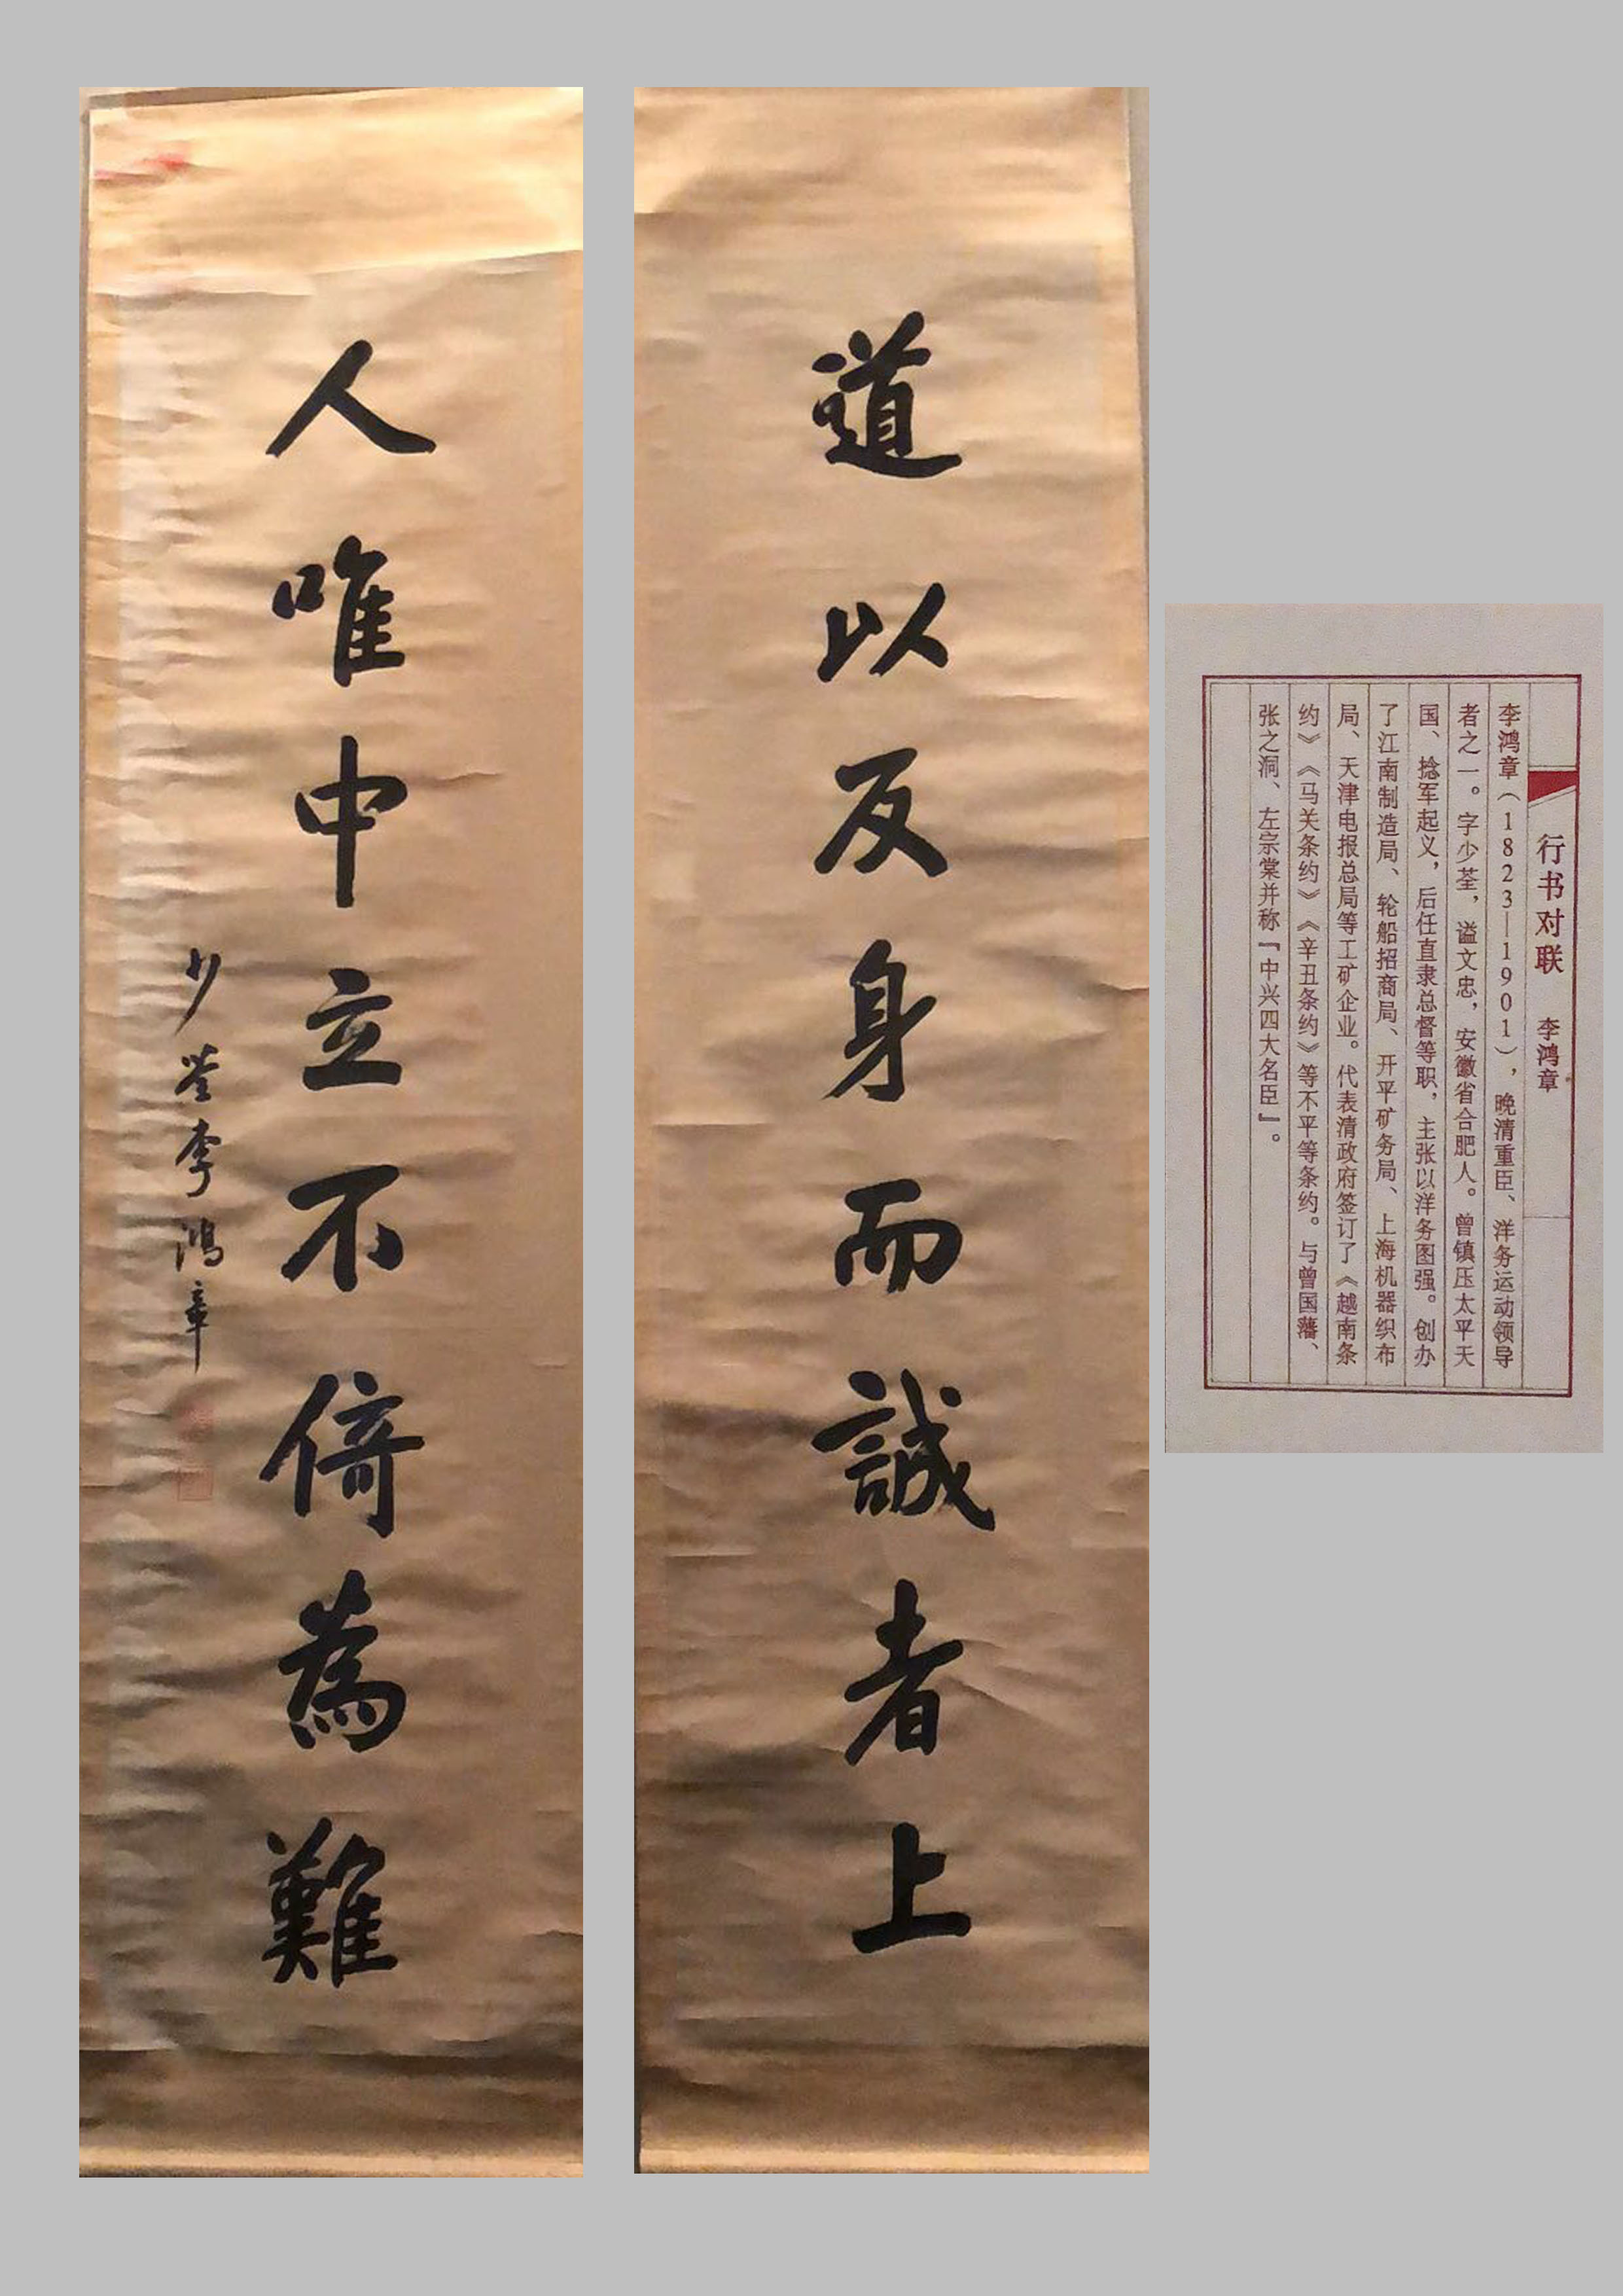 道以反身而誠者上
人唯中立不倚為難
少荃李鴻章
行书对联 李鸿章
李鸿章（1823—1901），晚清重臣、洋务运动领导
者之一。字少荃，谥文忠，安徽省合肥人。曾镇压太平天
国、捻军起义，后任直隶总督等职，主张以洋务图强。创办
了江南制造局、轮船招商局、开平矿务局、上海机器织布
局、天津电报总局等工矿企业。代表清政府签订了《越南条
约》《马关条约》《辛丑条约》等不平等条约。与曾国藩、
张之洞、左宗棠并称『中兴四大名臣』。